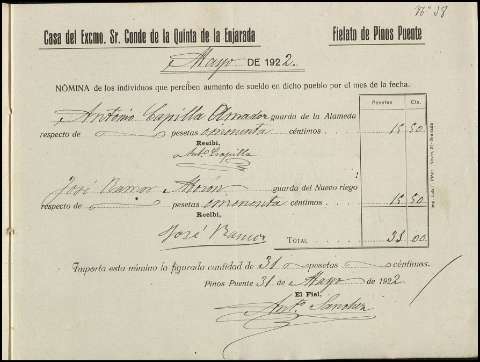 Nº 39
Casa del Excmo. Sr. Conde de la Quinta de la Enjarada
Fielato de Pinos Puente
Mayo DE 1922.
NÓMINA de los individuos que perciben aumento de sueldo en dicho pueblo por el mes de la fecha.
Pesetas Cts.
Antonio Capilla Amador guarda de la Alameda
respecto de pesetas céntimos 15 50
Recibí,
Antº Capilla
José Ramos Morón guarda del Nuevo riego
respecto de pesetas céntimos 15 50
Recibí,
José Ramos
TOTAL 31 00
Importa esta nómina la figurada cantidad de 31 pesetas céntimos.
Pinos Puente 31 de Mayo de 1922
El Fiel,
Antº Sanchez